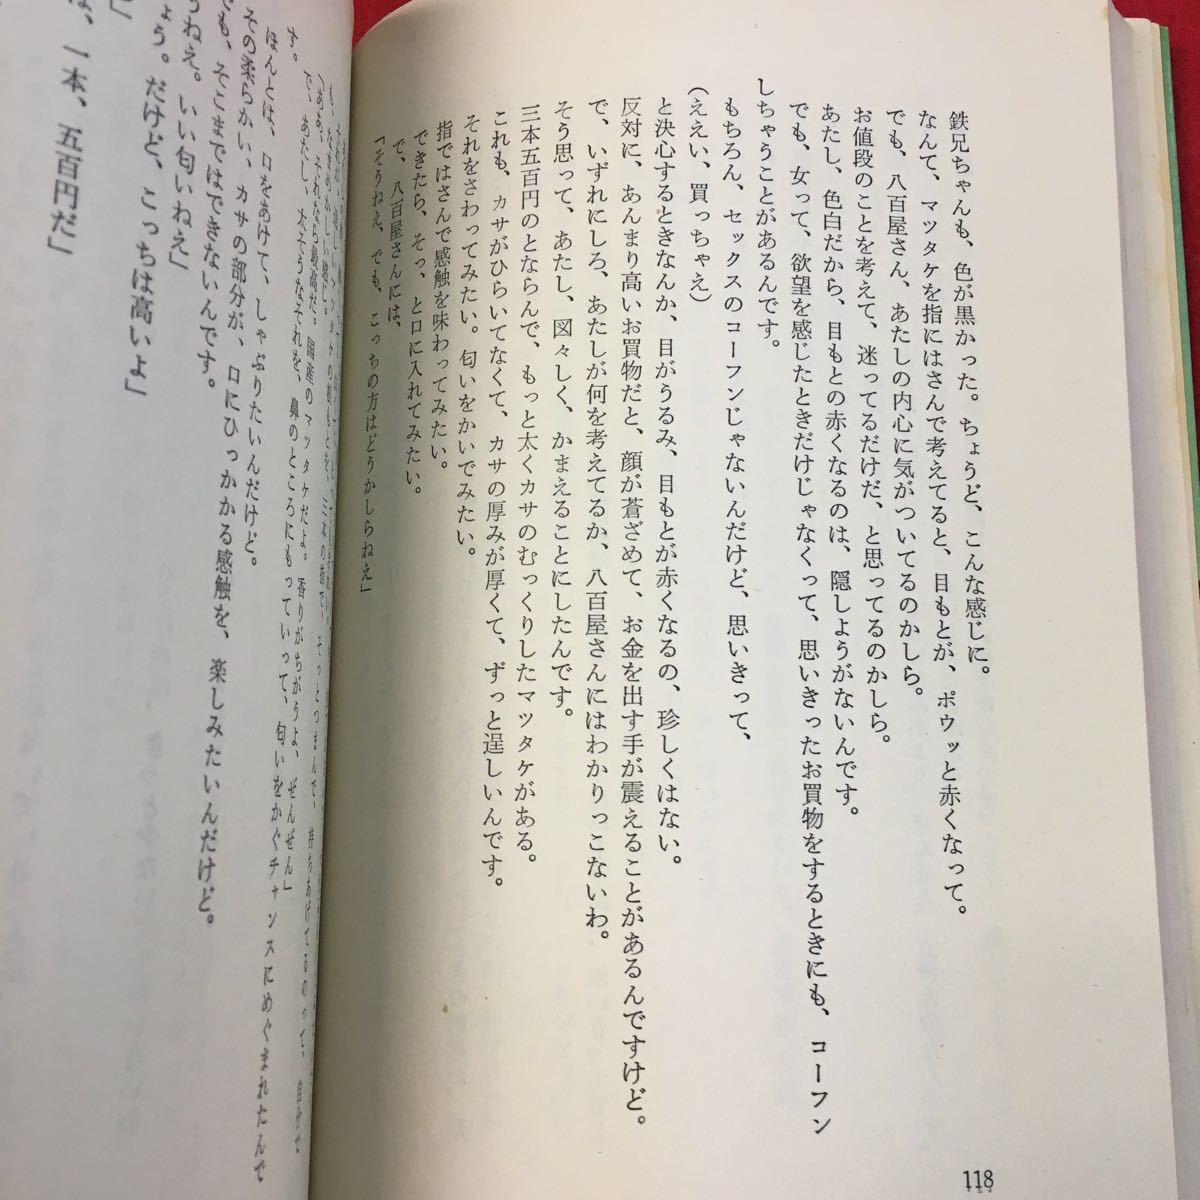 鉄兄ちゃんも、色が黒かった。ちょうど、こんな感じに。
なんて、マツタケを指にはさんで考えてると、目もとが、ポウッと赤くなって。
でも、八百屋さん、あたしの内心に気がついてるのかしら。
お値段のことを考えて、迷ってるだけだ、と思ってるのかしら。
あたし、色白だから、目もとの赤くなるのは、隠しようがないんです。
でも、女って、欲望を感じたときだけじゃなくって、思いきったお買物をするときにも、コーフン
しちゃうことがあるんです。
もちろん、セックスのコーフンじゃないんだけど、思いきって、
(ええい、買っちゃえ)
と決心するときなんか、目がうるみ、目もとが赤くなるの、珍しくはない。
反対に、あんまり高いお買物だと、顔が蒼ざめて、お金を出す手が震えることがあるんですけど。
で、いずれにしろ、あたしが何を考えてるか、八百屋さんにはわかりっこないわ。
そう思って、あたし、図々しく、かまえることにしたんです。
三本五百円のとならんで、もっと太くカサのむっくりしたマツタケがある。
これも、カサがひらいてなくて、カサの厚みが厚くて、ずっと逞しいんです。
それをさわってみたい。匂いをかいでみたい。
指ではさんで感触を味わってみたい。
できたら、そっ、と口に入れてみたい。
で、八百屋さんには、
「そうねえ、でも、こっちの方はどうかしらねえ」
118
で、あたし、太そうなそれを、鼻のところにもっていって、匂いをかぐチャンスにめぐまれたんで
す。
ほんとは、口をあけて、しゃぶりたいんだけど。
その柔らかい、カサの部分が、口にひっかかる感触を、楽しみたいんだけど。
でも、そこまではできないんです。
うねえ。いい匂いねえ」
ょう。だけど、こっちは高いよ」
は、一本、五百円だ」